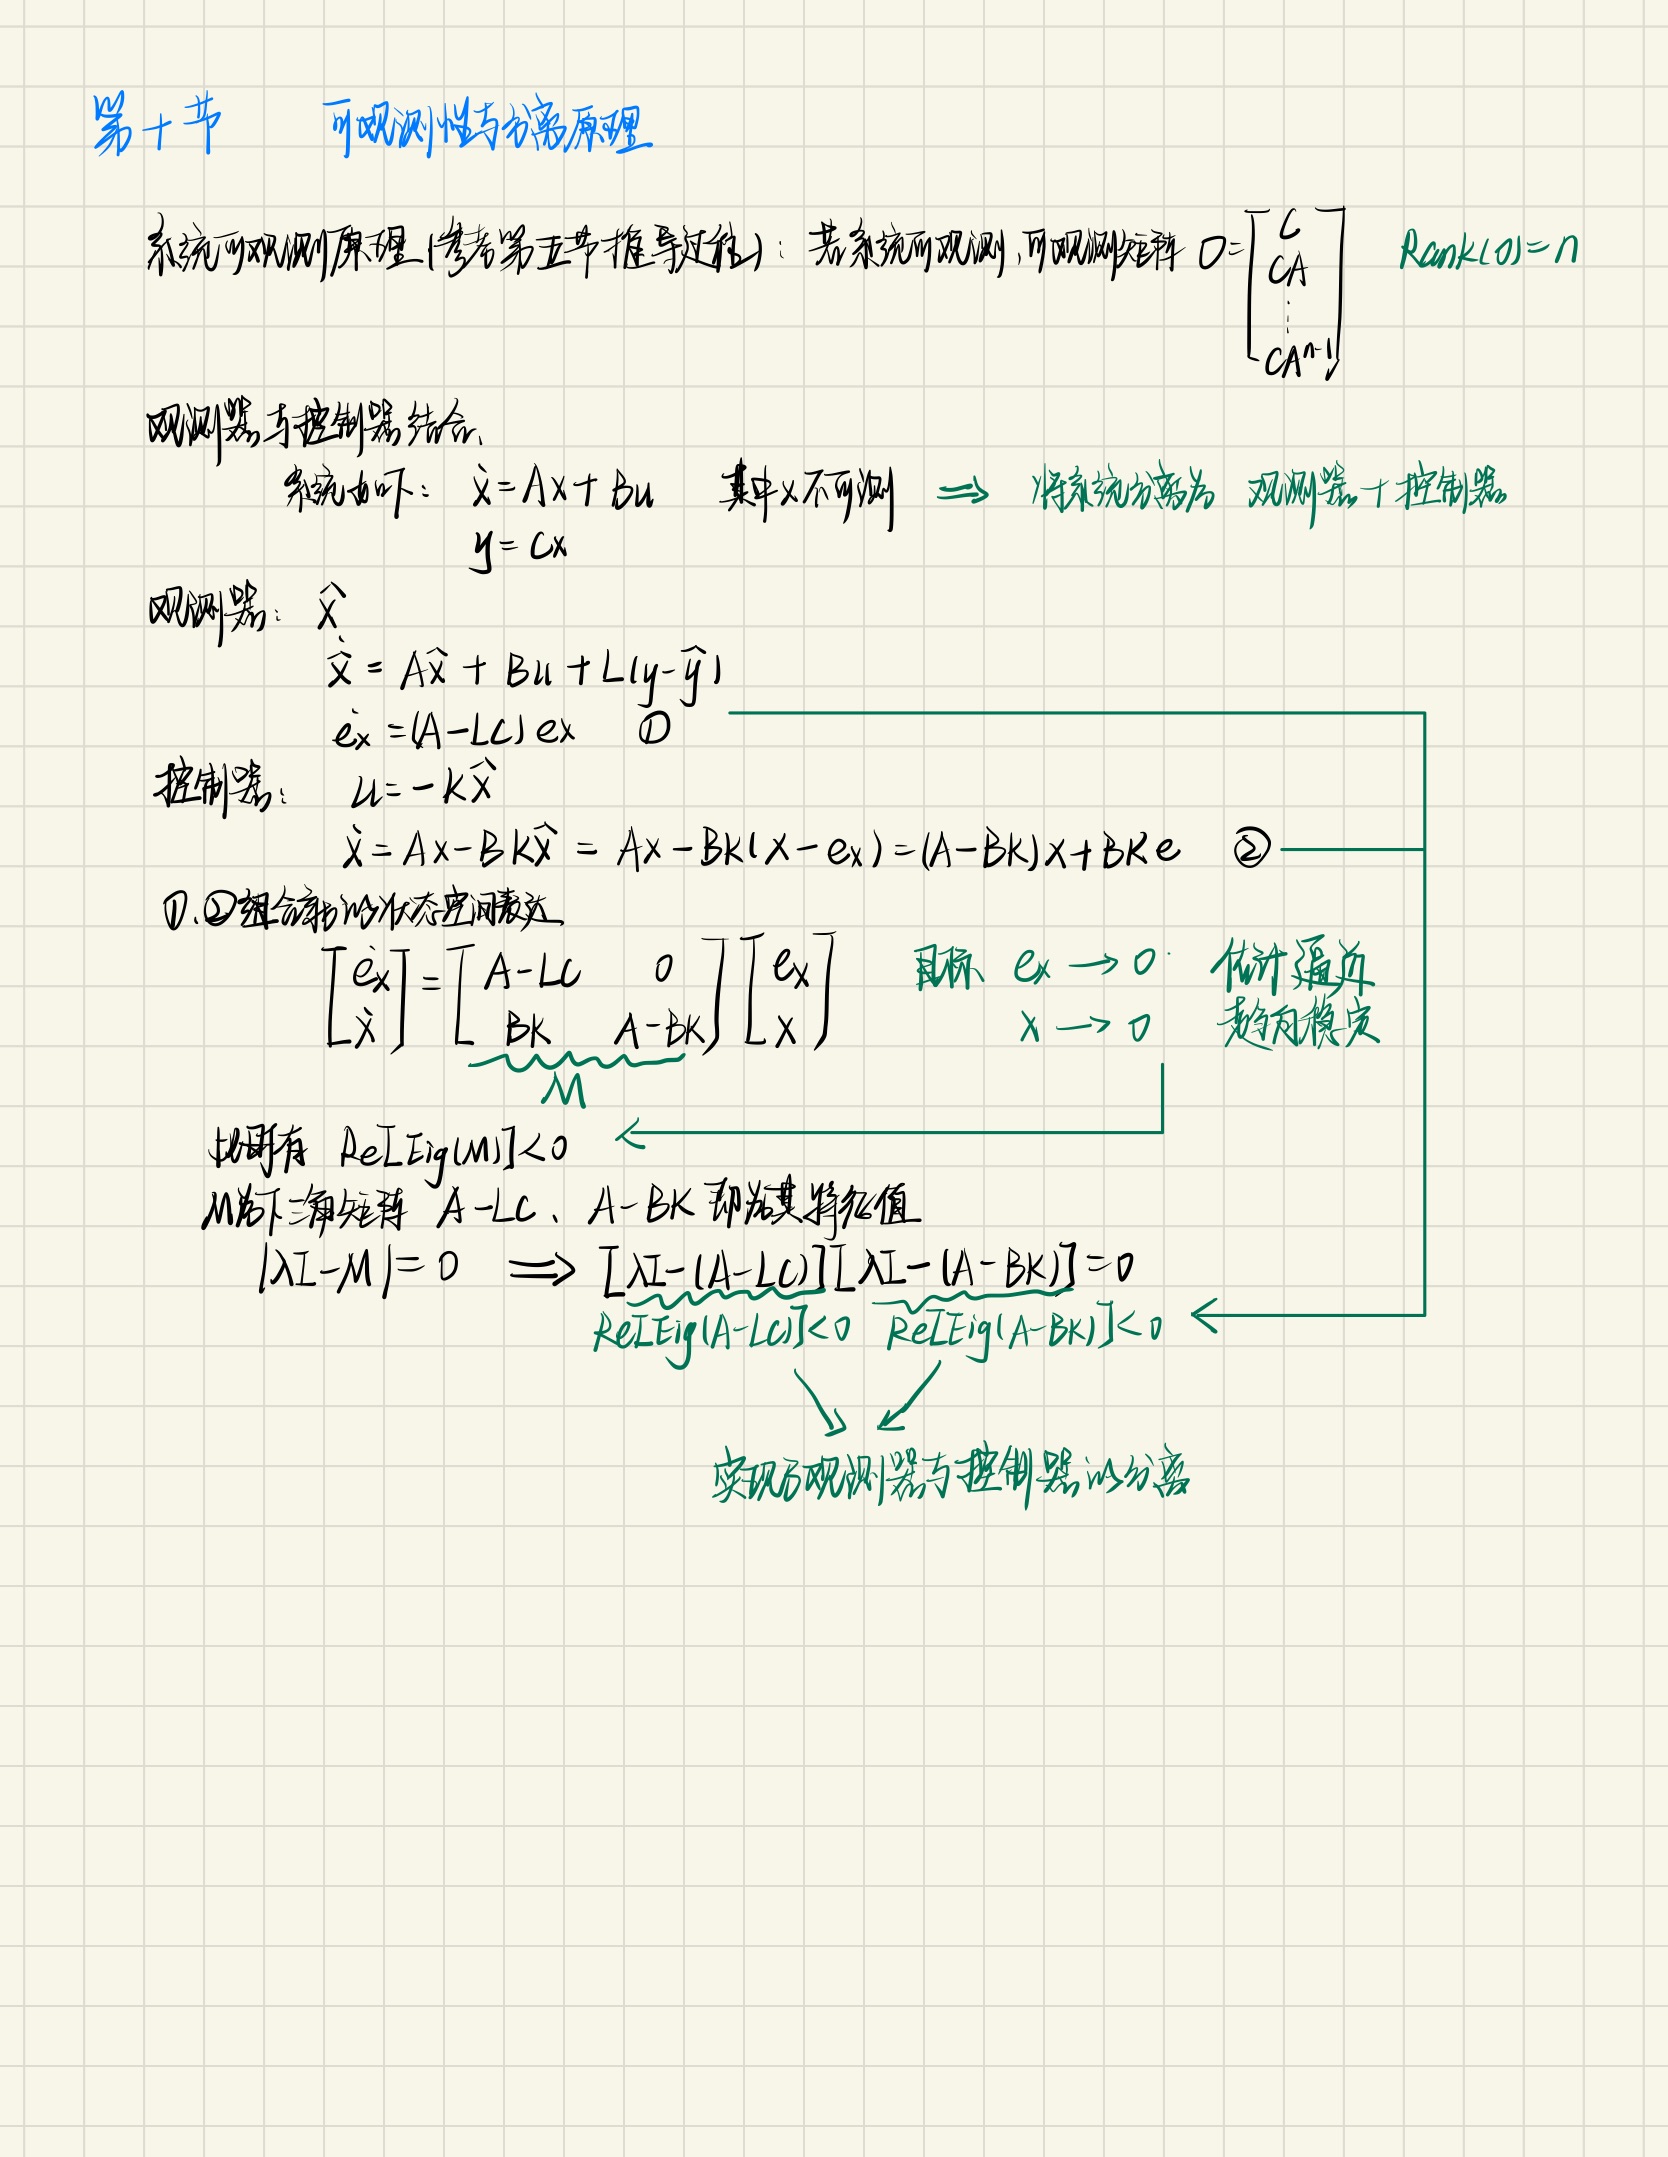 第十节 可观测性与分离原理
系统可观测原理(参考第五节推导过程): 若系统可观测,可观测矩阵 O=[C CA ⋮ CAⁿ⁻¹] Rank(O)=n
观测器与控制器结合、
系统如下: ẋ=Ax+Bu 其中x不可测 ⇒ 将系统分离为 观测器+控制器
y=Cx
观测器: x̂
x̂̇ = Ax̂ + Bu + L(y-ŷ)
ėx =(A-LC)ex ①
控制器: u=-Kx̂
ẋ=Ax-BKx̂ = Ax-BK(x-ex)=(A-BK)x+BKe ②
①.②组合新的状态空间表达
[ėx ẋ]=[A-LC 0 BK A-BK][ex x] 目标 ex→0 估计逼近
x→0 趋向稳定
M
有 Re[Eig(M)]<0
M为下三角矩阵 A-LC、A-BK 即为其特征值
|λI-M|=0 ⇒ [λI-(A-LC)][λI-(A-BK)]=0
Re[Eig(A-LC)]<0 Re[Eig(A-BK)]<0
实现了观测器与控制器的分离